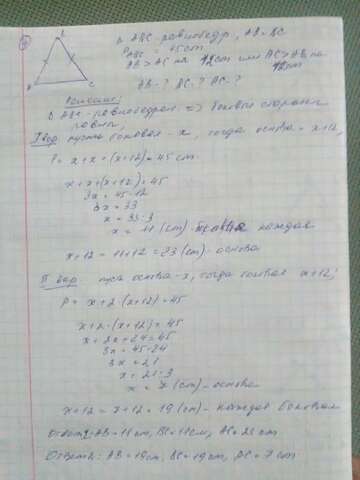 △ ABC - равнобедр, AB = BC
P ABC = 45 cm
AB > AC на 12cm или AC > AB на 12cm
AB - ? BC - ? AC - ?
B
A C
Решение:
△ ABC - равнобедрен => боковые стороны равны,
I вар пусть боковая - x, тогда основа = x+12,
P = x + x + (x+12) = 45 cm
x + x + (x+12) = 45
3x = 45-12
3x = 33
x = 33:3
x = 11 (cm) - боковая каждая
x+12 = 11+12 = 23 (cm) - основа
II вар пусть основа - x, тогда боковая x+12,
P = x + 2·(x+12) = 45
x + 2·(x+12) = 45
x + 2x + 24 = 45
3x = 45-24
3x = 21
x = 21:3
x = 7 (cm) - основа
x+12 = 7+12 = 19 (cm) - каждая боковая
Ответ1: AB = 11 cm, BC = 11 cm, AC = 23 cm
Ответ2: AB = 19cm, BC = 19 cm, AC = 7 cm